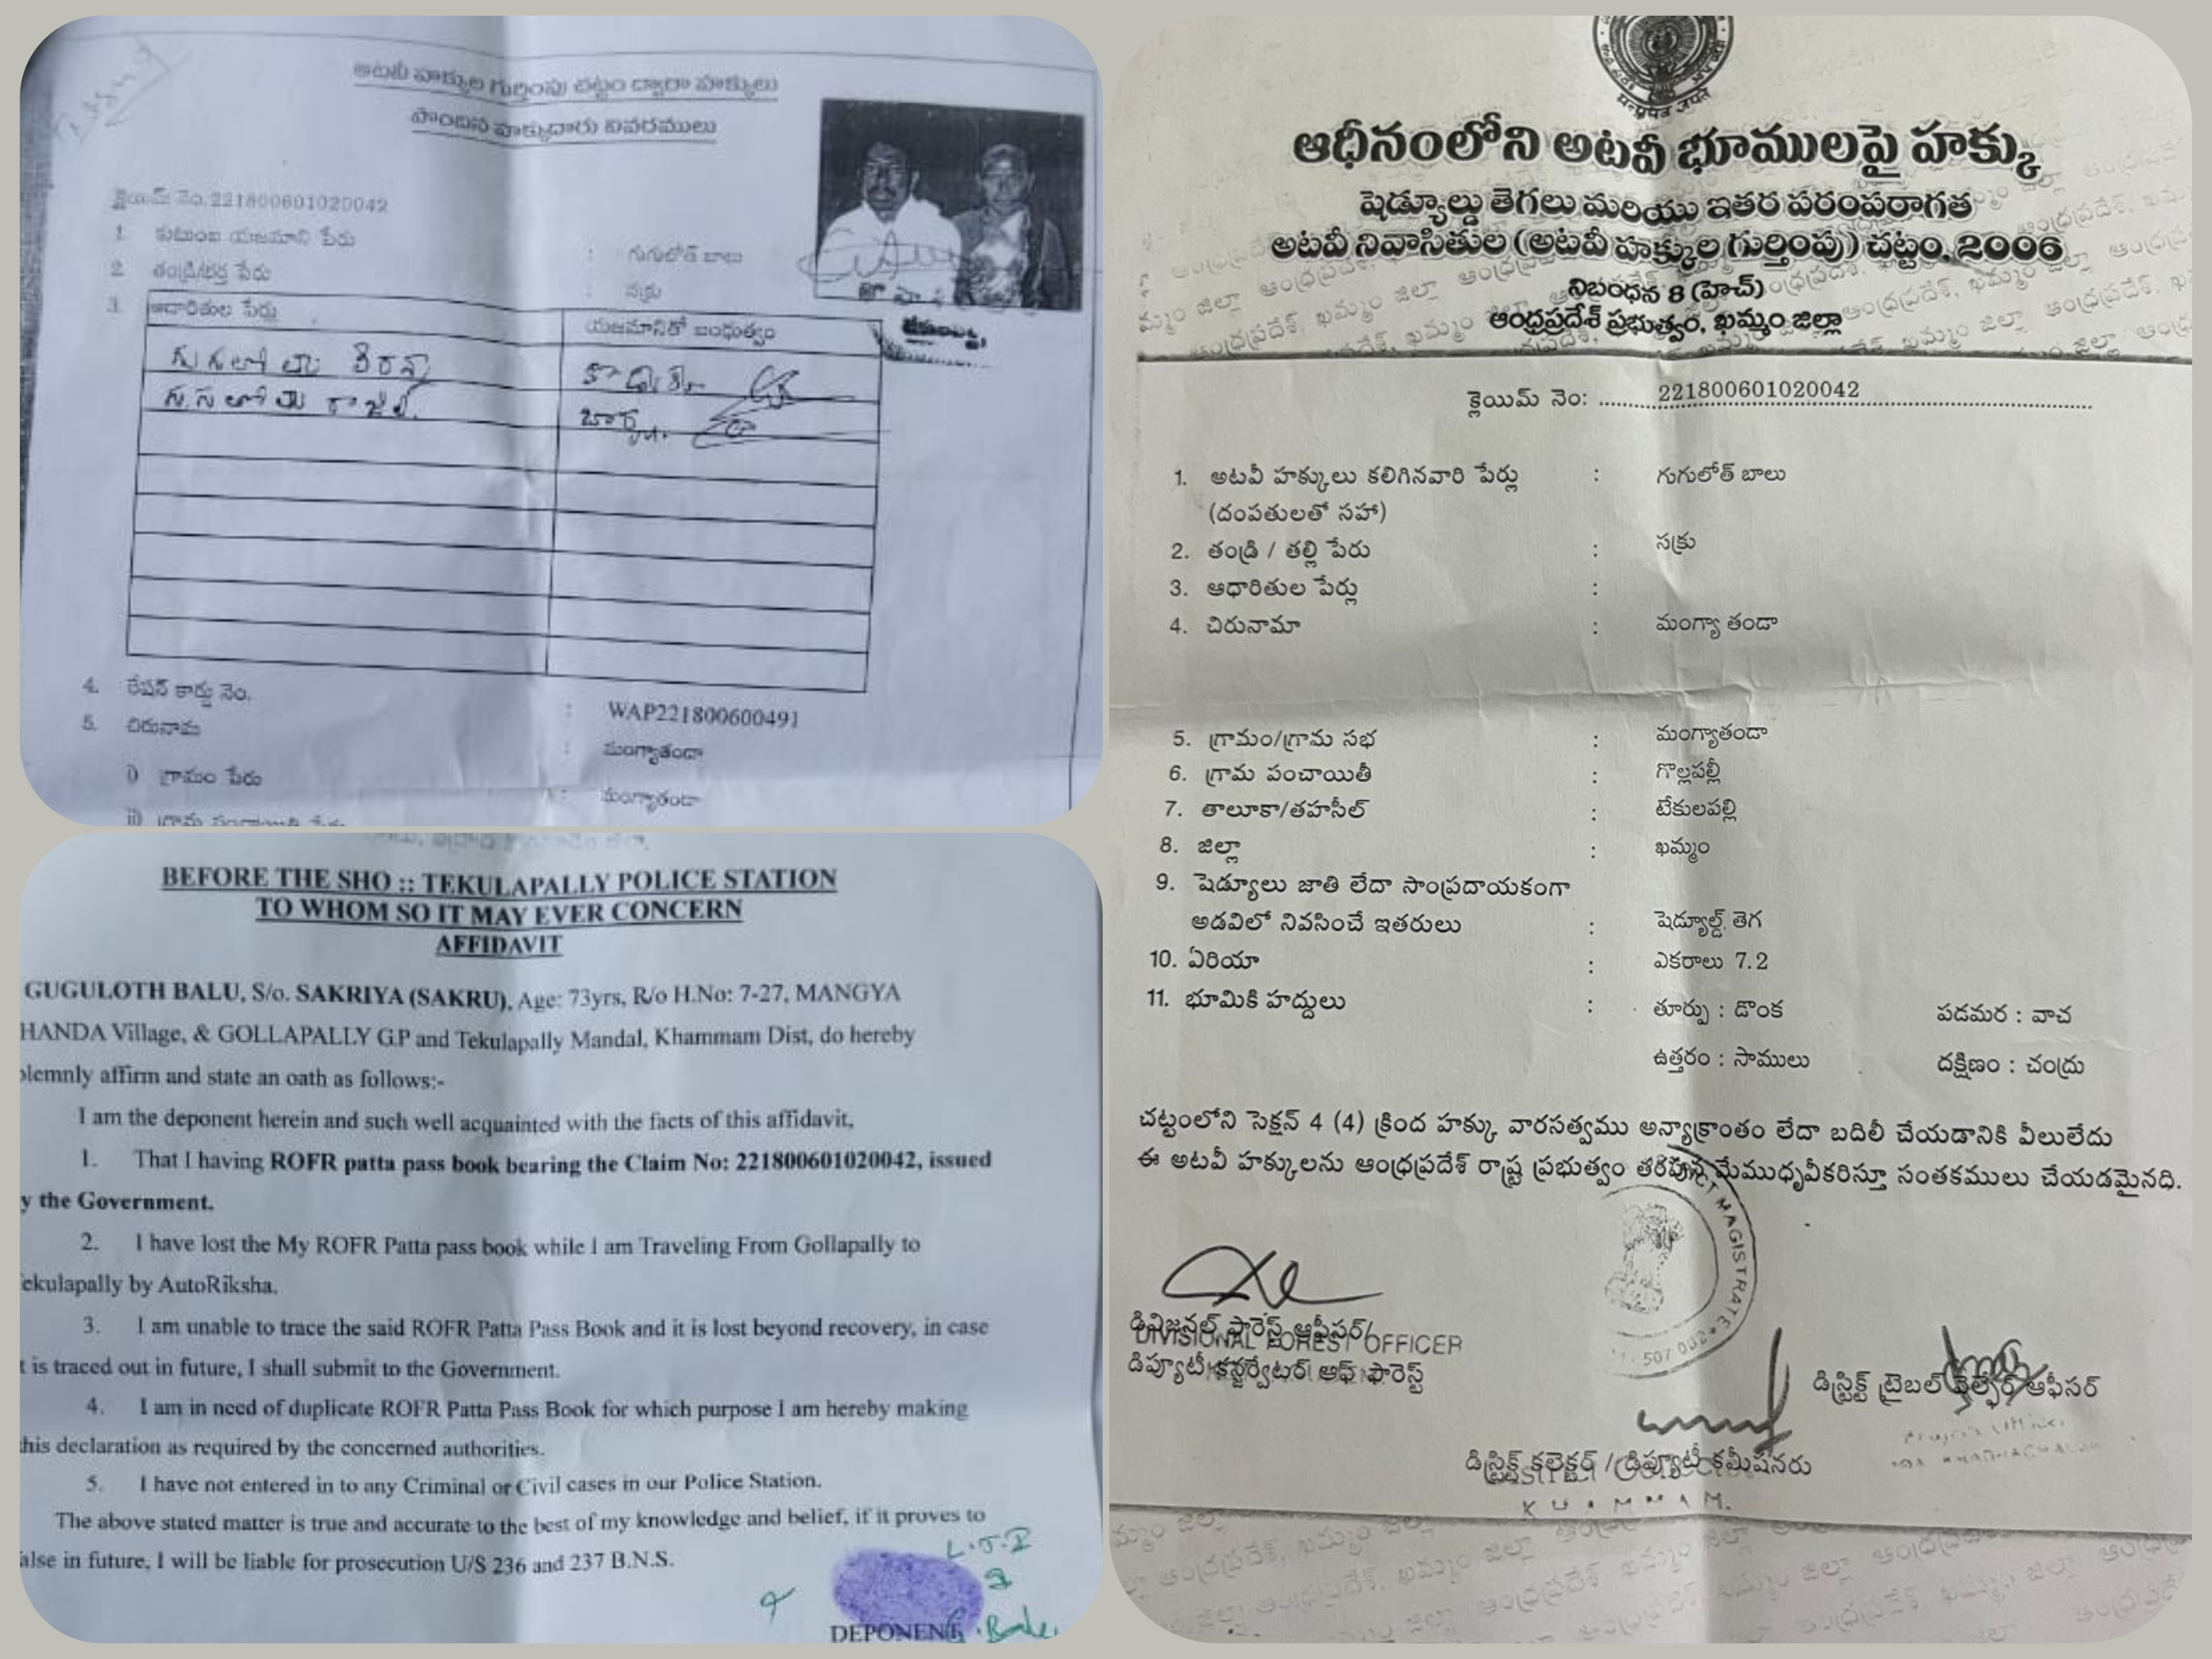 అటవీ హక్కుల గుర్తింపు చట్టం ద్వారా హక్కులు
పొందిన హక్కుదారు వివరములు
క్లెయిమ్ నెం. 221800601020042
1. కుటుంబ యజమాని పేరు : గుగులోత్ బాలు
2. తండ్రి/భర్త పేరు : సక్రు
3. ఆధారితుల పేర్లు యజమానితో బంధుత్వం
4. రేషన్ కార్డు నెం. : WAP221800600491
5. చిరునామ : మంగ్యాతండా
i) గ్రామం పేరు : మంగ్యాతండా
BEFORE THE SHO :: TEKULAPALLY POLICE STATION
TO WHOM SO IT MAY EVER CONCERN
AFFIDAVIT
GUGULOTH BALU, S/o. SAKRIYA (SAKRU), Age: 73yrs, R/o H.No: 7-27, MANGYA
HANDA Village, & GOLLAPALLY G.P and Tekulapally Mandal, Khammam Dist, do hereby
lemnly affirm and state an oath as follows:-
I am the deponent herein and such well acquainted with the facts of this affidavit,
1. That I having ROFR patta pass book bearing the Claim No: 221800601020042, issued
y the Government.
2. I have lost the My ROFR Patta pass book while I am Traveling From Gollapally to
ekulapally by AutoRiksha.
3. I am unable to trace the said ROFR Patta Pass Book and it is lost beyond recovery, in case
t is traced out in future, I shall submit to the Government.
4. I am in need of duplicate ROFR Patta Pass Book for which purpose I am hereby making
his declaration as required by the concerned authorities.
5. I have not entered in to any Criminal or Civil cases in our Police Station.
The above stated matter is true and accurate to the best of my knowledge and belief, if it proves to
alse in future, I will be liable for prosecution U/S 236 and 237 B.N.S.
L.T.I
DEPONENT
ఆధీనంలోని అటవీ భూములపై హక్కు
షెడ్యూల్డు తెగలు మరియు ఇతర పరంపరాగత
అటవీ నివాసితుల (అటవీ హక్కుల గుర్తింపు) చట్టం, 2006
నిబంధన 8 (హెచ్)
ఆంధ్రప్రదేశ్ ప్రభుత్వం, ఖమ్మం జిల్లా
క్లెయిమ్ నెం: 221800601020042
1. అటవీ హక్కులు కలిగినవారి పేర్లు : గుగులోత్ బాలు
(దంపతులతో సహా)
2. తండ్రి / తల్లి పేరు : సక్రు
3. ఆధారితుల పేర్లు :
4. చిరునామా : మంగ్యా తండా
5. గ్రామం/గ్రామ సభ : మంగ్యాతండా
6. గ్రామ పంచాయితీ : గొల్లపల్లీ
7. తాలూకా/తహసీల్ : టేకులపల్లి
8. జిల్లా : ఖమ్మం
9. షెడ్యూలు జాతి లేదా సాంప్రదాయకంగా
అడవిలో నివసించే ఇతరులు : షెడ్యూల్డ్ తెగ
10. ఏరియా : ఎకరాలు 7.2
11. భూమికి హద్దులు : తూర్పు : డొంక పడమర : వాచ
ఉత్తరం : సాములు దక్షిణం : చంద్రు
చట్టంలోని సెక్షన్ 4 (4) క్రింద హక్కు వారసత్వము అన్యాక్రాంతం లేదా బదిలీ చేయడానికి వీలులేదు
ఈ అటవీ హక్కులను ఆంధ్రప్రదేశ్ రాష్ట్ర ప్రభుత్వం తరపున మేముధృవీకరిస్తూ సంతకములు చేయడమైనది.
MAGISTRATE
507 002
డివిజనల్ ఫారెస్ట్ ఆఫీసర్/
DIVISIONAL FOREST OFFICER
డిప్యూటీ కన్జర్వేటర్ ఆఫ్ ఫారెస్ట్
డిస్ట్రిక్ట్ ట్రైబల్ వెల్ఫేర్ ఆఫీసర్
డిస్ట్రిక్ట్ కలెక్టర్ / డిప్యూటీ కమీషనరు